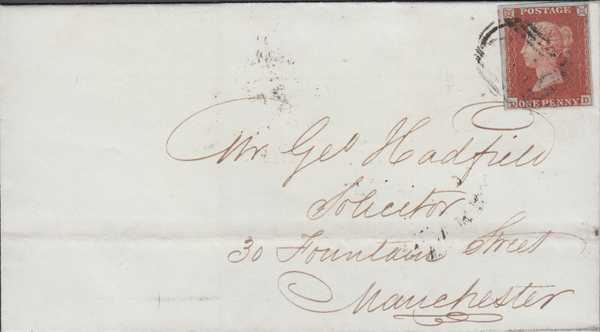 POSTAGE
ONE PENNY
D
Mr. Geo Hadfield
Solicitor
30 Fountain Street
Manchester